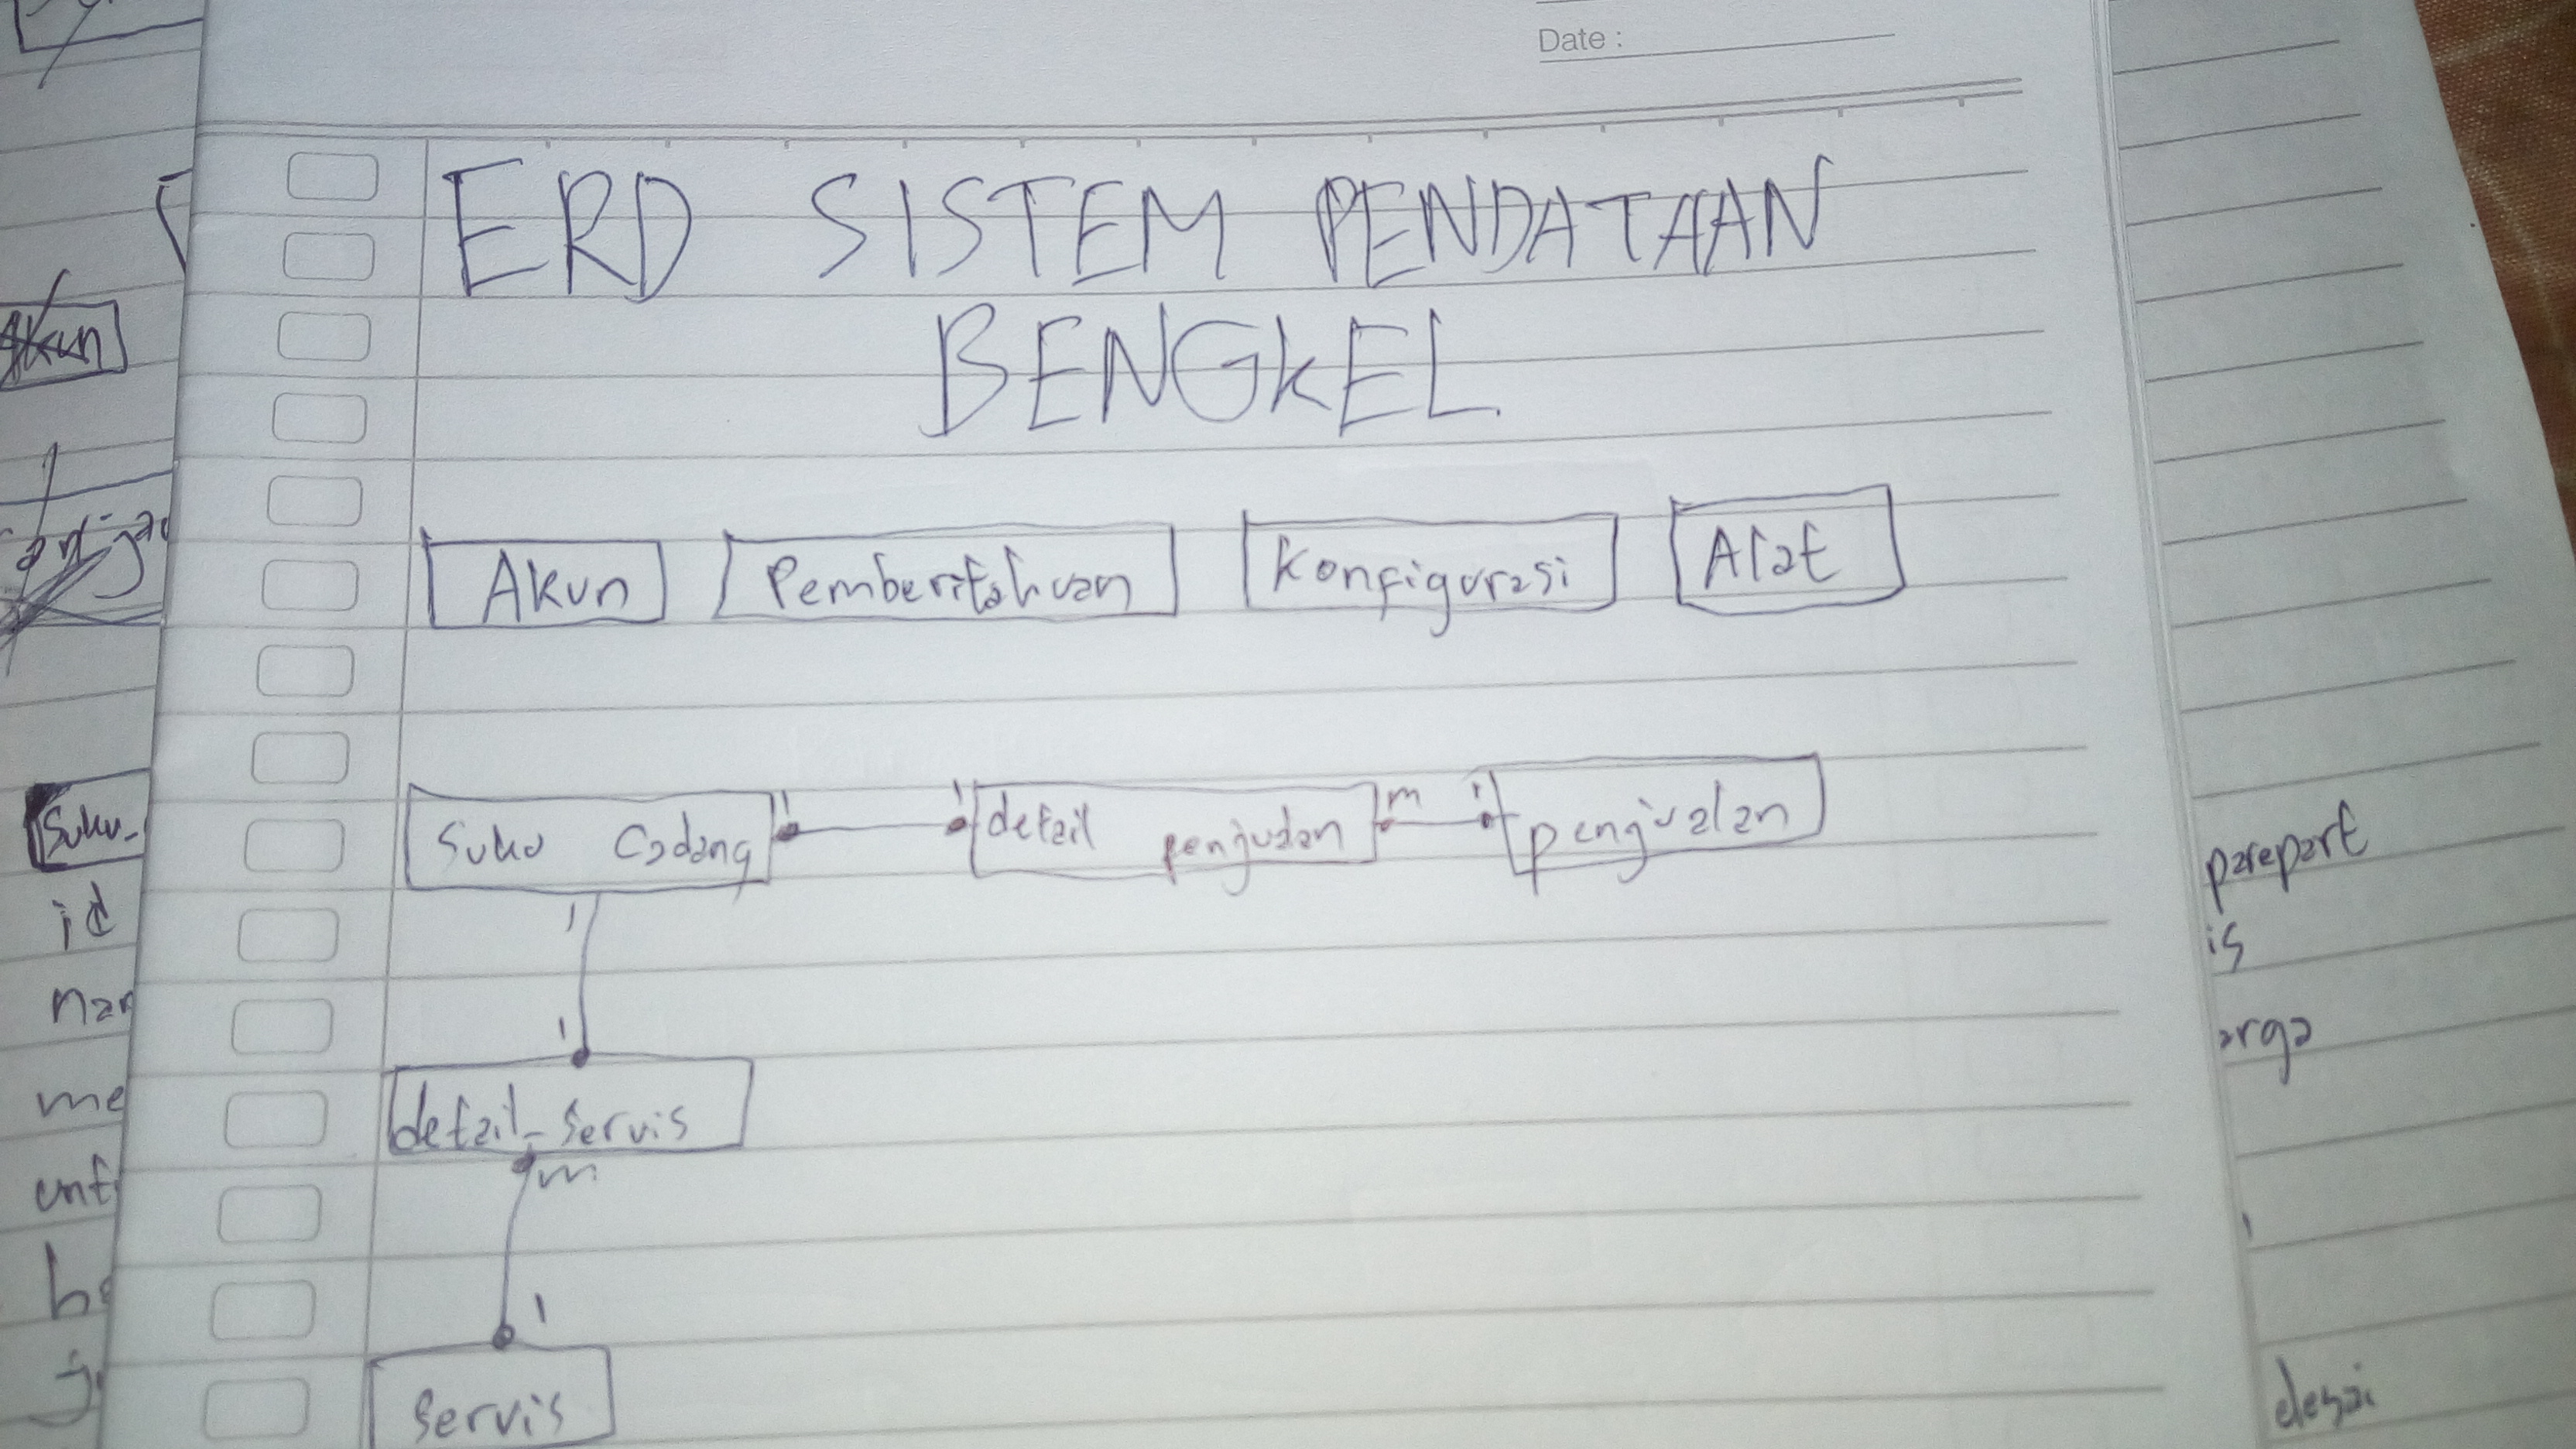 Date :
ERD SISTEM PENDATAAN
BENGKEL
Akun
Pemberitahuan
Konfigurasi
Alat
Suku Cadang
1
1
detail penjualan
m
1
penjualan
1
1
detail_servis
m
1
Servis
Akun
Suku_
id
nam
me
parepart
is
arga
desai